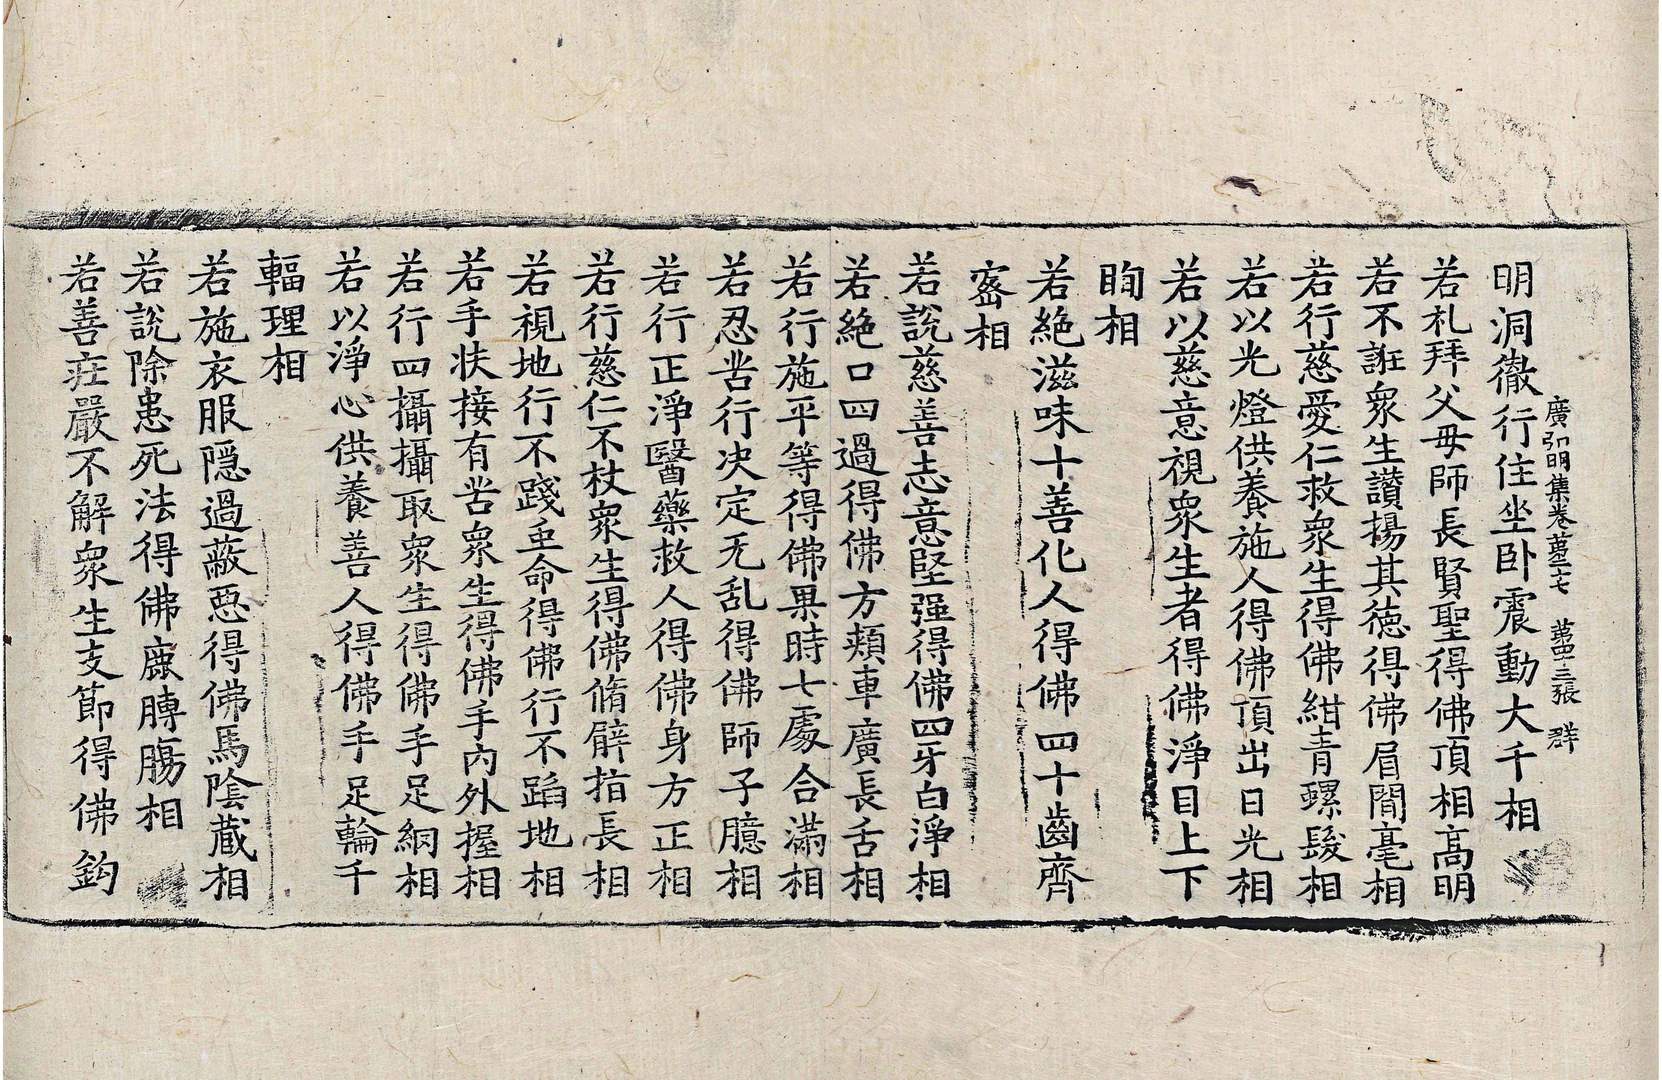 廣弘明集卷苐二七　苐四十三張　群
明洞徹行住坐卧震動大千相
若礼拜父母師長賢聖得佛頂相高明
若不誑衆生讃揚其徳得佛眉間毫相
若行慈愛仁救衆生得佛紺青螺髮相
若以光燈供養施人得佛頂出日光相
若以慈意視衆生者得佛淨目上下
眴相
若絶滋味十善化人得佛四十齒齊
密相
若說慈善志意堅强得佛四牙白淨相
若絶口四過得佛方頰車廣長舌相
若行施平等得佛果時七處合滿相
若忍苦行决定无乱得佛師子臆相
若行正淨醫藥救人得佛身方正相
若行慈仁不杖衆生得佛脩臂指長相
若視地行不踐虫命得佛行不蹈地相
若手扶接有苦衆生得佛手內外握相
若行四攝攝取衆生得佛手足網相
若以淨心供養善人得佛手足輪千
輻理相
若施衣服隱過蔽惡得佛馬陰蔵相
若說除患死法得佛鹿膞腸相
若善莊嚴不解衆生支節得佛鈎